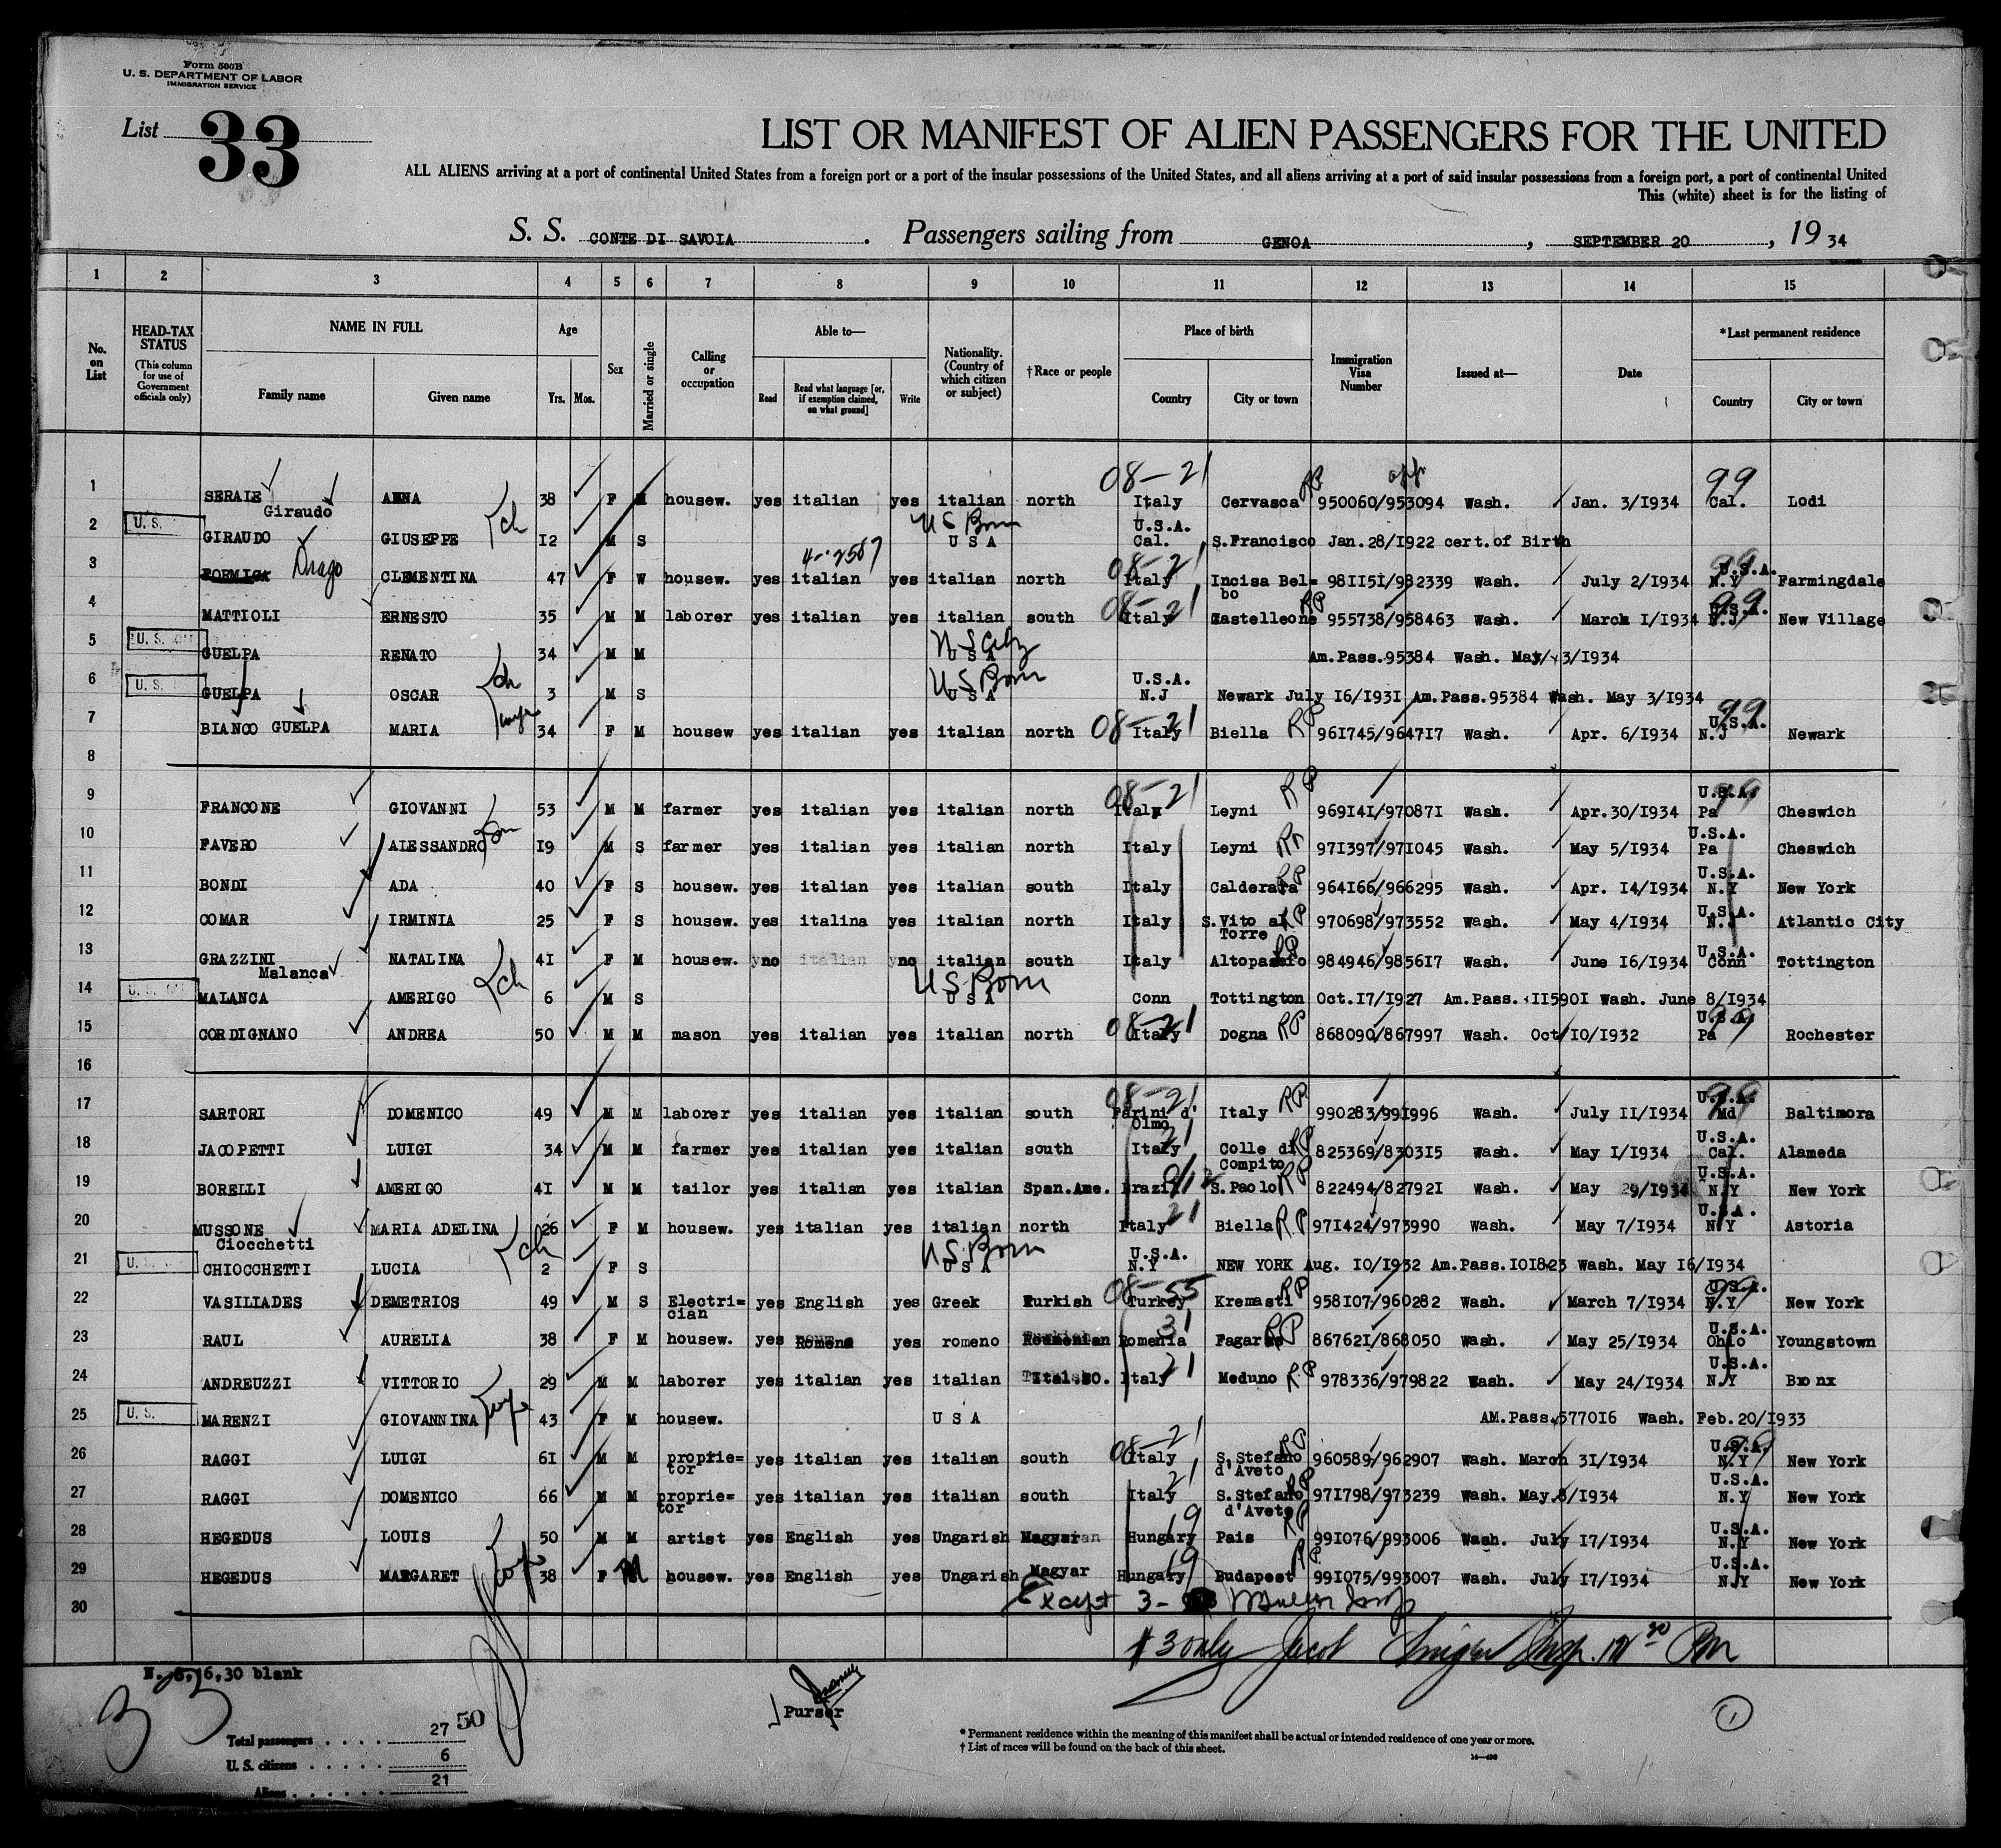 Form 500B
U. S. DEPARTMENT OF LABOR
IMMIGRATION SERVICE
List 33
LIST OR MANIFEST OF ALIEN PASSENGERS FOR THE UNITED
ALL ALIENS arriving at a port of continental United States from a foreign port or a port of the insular possessions of the United States, and all aliens arriving at a port of said insular possessions from a foreign port, a port of continental United
This (white) sheet is for the listing of
S. S. CONTE DI SAVOIA. Passengers sailing from GENOA, SEPTEMBER 20, 19 34
1 2 3 4 5 6 7 8 9 10 11 12 13 14 15
No. on List
HEAD-TAX STATUS
(This column for use of Government officials only)
NAME IN FULL
Family name Given name
Age
Yrs. Mos.
Sex
Married or single
Calling or occupation
Able to—
Read
Read what language [or, if exemption claimed, on what ground]
Write
Nationality. (Country of which citizen or subject)
†Race or people
Place of birth
Country City or town
Immigration Visa Number
Issued at—
Date
*Last permanent residence
Country City or town
08-21 RP 99
1 SERAIE ANNA 38 F M housew. yes italian yes italian north Italy Cervasca 950060/953094 Wash. Jan. 3/1934 Cal. Lodi
Giraudo
U.S. ch US Born U.S.A.
2 GIRAUDO GIUSEPPE 12 M S U S A Cal. S.Francisco Jan.28/1922 cert.of Birth
Drago 08-21 U.S.A.
3 FORMICA CLEMENTINA 47 F W housew. yes italian yes italian north Italy Incisa Bel= 981151/982339 Wash. July 2/1934 N.Y Farmingdale
bo
08-21 RP 99 U.S.A.
4 MATTIOLI ERNESTO 35 M M laborer yes italian yes italian south Italy Castelleone 955738/958463 Wash. March 1/1934 N.J New Village
U.S.
5 GUELPA RENATO 34 M M U S A Am.Pass.95384 Wash. May 3/1934
U.S. ch US Born U.S.A.
6 GUELPA OSCAR 3 M S U S A N.J Newark July 16/1931 Am.Pass.95384 Wash. May 3/1934
08-21 RP 99 U.S.A.
7 BIANCO GUELPA MARIA 34 F M housew yes italian yes italian north Italy Biella 961745/964717 Wash. Apr. 6/1934 N.J Newark
8
08-21 RP U.S.A.
9 FRANCONE GIOVANNI 53 M M farmer yes italian yes italian north Italy Leyni 969141/970871 Wash. Apr.30/1934 Pa Cheswich
U.S.A.
10 FAVERO ALESSANDRO 19 M S farmer yes italian yes italian north Italy Leyni 971397/971045 Wash. May 5/1934 Pa Cheswich
RP U.S.A.
11 BONDI ADA 40 F S housew. yes italian yes italian south Italy Calderara 964166/966295 Wash. Apr. 14/1934 N.Y New York
RP U.S.A.
12 COMAR IRMINIA 25 F S housew. yes italina yes italian north Italy S.Vito al 970698/973552 Wash. May 4/1934 N.J Atlantic City
Torre
RP U.S.A.
13 GRAZZINI NATALINA 41 F M housew. no italian no italian south Italy Altopascio 984946/985617 Wash. June 16/1934 Conn Tottington
Malanca
U.S. ch US Born
14 MALANCA AMERIGO 6 M S U S A Conn Tottington Oct.17/1927 Am.Pass. 115901 Wash. June 8/1934
08-21 RP 99 U.S.A.
15 CORDIGNANO ANDREA 50 M M mason yes italian yes italian north Italy Dogna 868090/867997 Wash. Oct 10/1932 Pa Rochester
16
08-21 RP 99 U.S.A.
17 SARTORI DOMENICO 49 M M laborer yes italian yes italian south Farini d' Italy 990283/991996 Wash. July 11/1934 Md Baltimora
Olmo
21 RP U.S.A.
18 JACOPETTI LUIGI 34 M M farmer yes italian yes italian south Italy Colle di 825369/830315 Wash. May 1/1934 Cal. Alameda
Compito
RP U.S.A.
19 BORELLI AMERIGO 41 M M tailor yes italian yes italian Span.Ame. Brazil S.Paolo 822494/827921 Wash. May 29/1934 N.Y New York
21 RP U.S.A.
20 MUSSONE MARIA ADELINA 26 F M housew. yes italian yes italian north Italy Biella 971424/973990 Wash. May 7/1934 N.Y Astoria
Ciocchetti
U.S. ch US Born U.S.A.
21 CHIOCCHETTI LUCIA 2 F S U S A N.Y NEW YORK Aug. 10/1932 Am.Pass.101823 Wash. May 16/1934
08-55 RP 99 U.S.A.
22 VASILIADES DEMETRIOS 49 M S Electri= yes English yes Greek Turkish Turkey Kremasti 958107/960282 Wash. March 7/1934 N.Y New York
cian
31 RP U.S.A.
23 RAUL AURELIA 38 F M housew. yes Romena yes romeno Roumenian Romenia Fagaras 867621/868050 Wash. May 25/1934 Ohio Youngstown
21 RP U.S.A.
24 ANDREUZZI VITTORIO 29 M M laborer yes italian yes italian Ital.NO. Italy Meduno 978336/979822 Wash. May 24/1934 N.Y Bronx
U.S. wife
25 MARENZI GIOVANNINA 43 F M housew. U S A AM.Pass.577016 Wash. Feb.20/1933
08-21 RP 99 U.S.A.
26 RAGGI LUIGI 61 M M proprie= yes italian yes italian south Italy S.Stefano 960589/962907 Wash. March 31/1934 N.Y New York
tor d'Aveto
21 RP U.S.A.
27 RAGGI DOMENICO 66 M M proprie= yes italian yes italian south Italy S.Stefano 971798/973239 Wash. May.8/1934 N.Y New York
tor d'Aveto
19 RP U.S.A.
28 HEGEDUS LOUIS 50 M M artist yes English yes Ungarish Magyar Hungary Pais 991076/993006 Wash. July 17/1934 N.Y New York
wife 19 RP U.S.A.
29 HEGEDUS MARGARET 38 F M housew. yes English yes Ungarish Magyar Hungary Budapest 991075/993007 Wash. July 17/1934 N.Y New York
30 Except 3-
#3 only Jacob
N. 8,16,30 blank
33
Purser
Total passengers 27 50
U. S. citizens 6
Aliens 21
* Permanent residence within the meaning of this manifest shall be actual or intended residence of one year or more.
† List of races will be found on the back of this sheet.
1